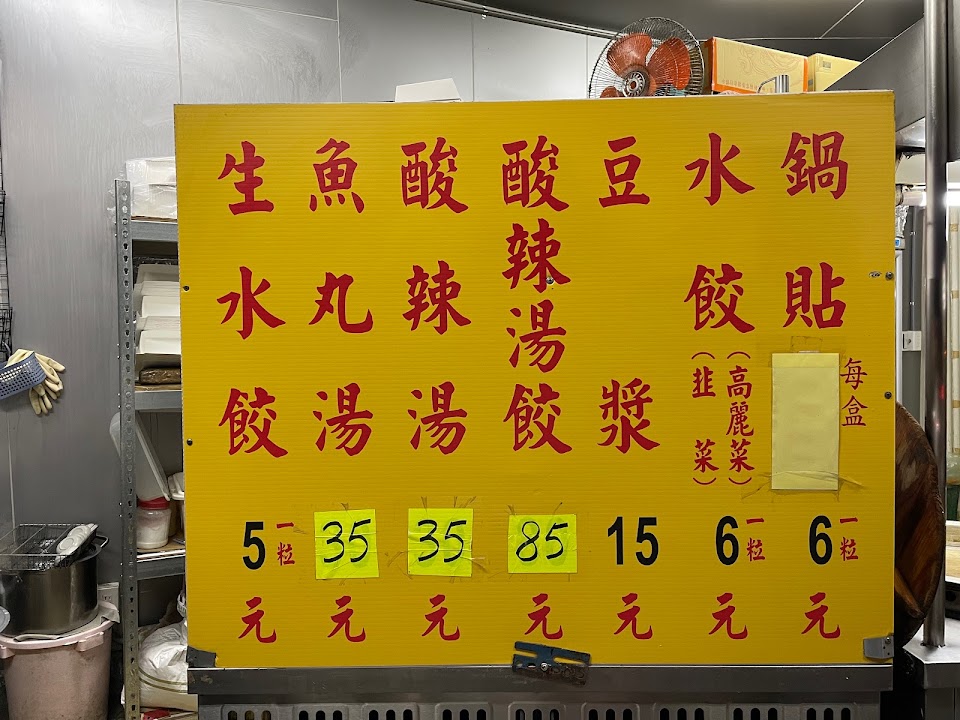 鍋貼
每盒
6一粒
元
水餃
(高麗菜)
(韭菜)
6一粒
元
豆漿
15
元
酸辣湯餃
85
元
酸辣湯
35
元
魚丸湯
35
元
生水餃
5一粒
元